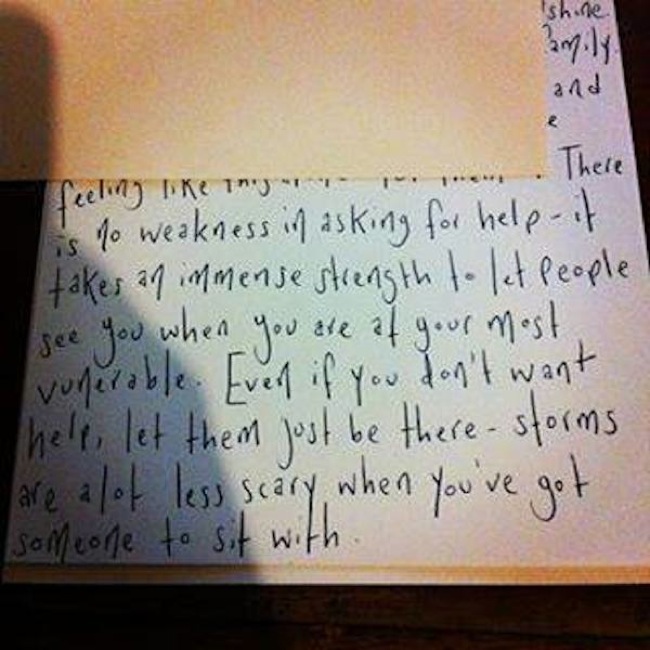 shine
amily.
and
e
feeling like this There
is no weakness in asking for help - it
takes an immense strength to let people
see you when you are at your most
vunerable. Even if you don't want
help, let them just be there - storms
are alot less scary when you've got
someone to sit with.